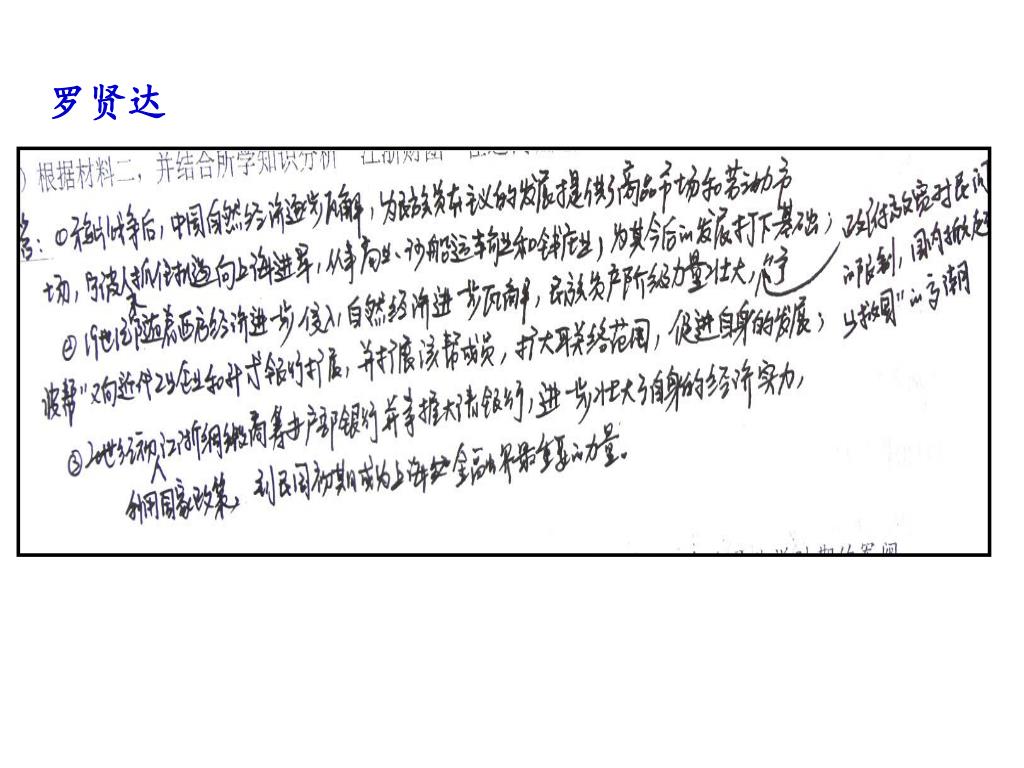 罗贤达
)根据材料二,并结合所学知识分析"江浙财团"在近代
答:①鸦片战争后,中国自然经济逐步瓦解,为民族资本主义的发展提供了商品市场和劳动力市
场,宁波人抓住机遇向上海进军,从事商业、沙船运输业和钱庄业,为其今后的发展打下基础;
政府放宽对民间
的限制,国内掀起
"救国"的高潮
②19世纪随着西方经济进一步侵入,自然经济进一步瓦解,民族资产阶级力量壮大,宁
波帮"又向近代工业企业和新式银行扩展,并扩展该帮成员,扩大联络范围,促进自身的发展;
③20世纪初,江浙绸缎商筹办户部银行并掌握大清银行,进一步壮大了自身的经济实力,
利用国家政策,到民国初期成为上海金融界最重要的力量。